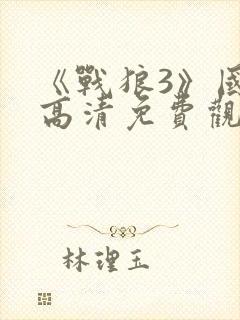 《戰狼3》國
高清免費觀
林理玉